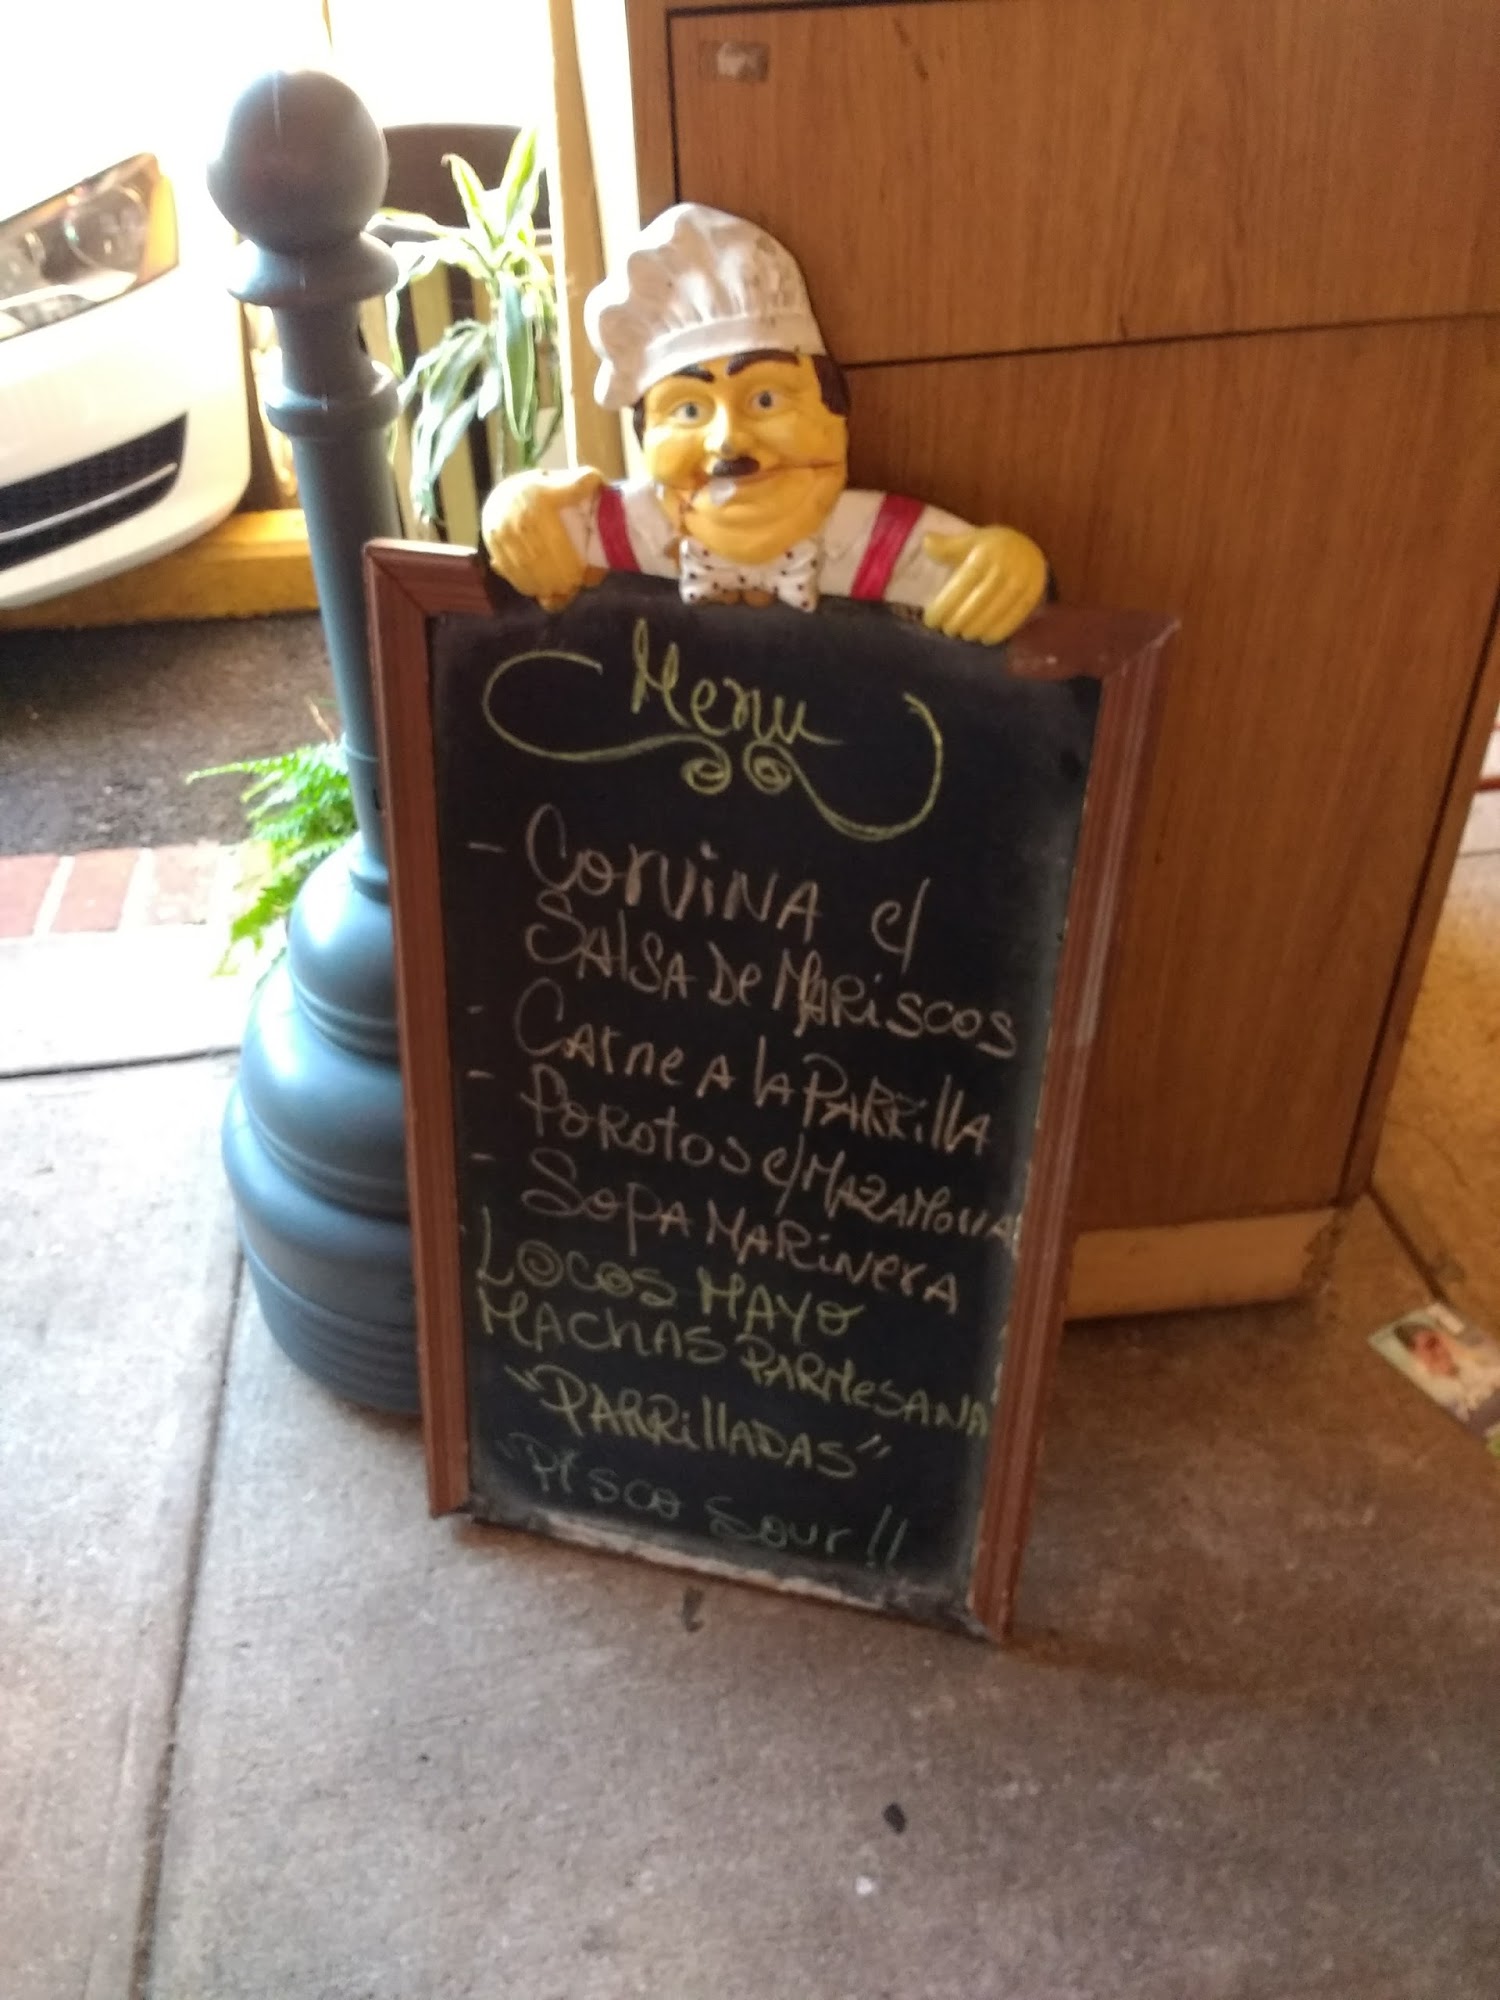 Menu
- Corvina c/
Salsa De Mariscos
- Carne A la Parrilla
- Porotos c/Mazamorra
- Sopa Marinera
Locos Mayo
Machas Parmesana
"Parrilladas"
"Pisco Sour!!